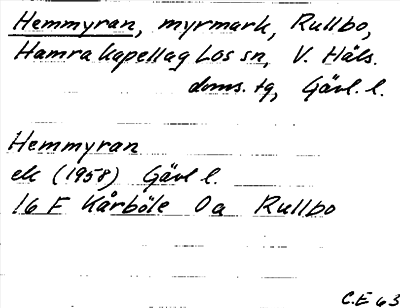 Hemmyran, myrmark, Rullbo,
Hamra kapellag Los sn, V. Häls.
doms. tg, Gävl. l.
Hemmyran
ek (1958) Gävl l.
16 F Kårböle 0a Rullbo
C.E 63